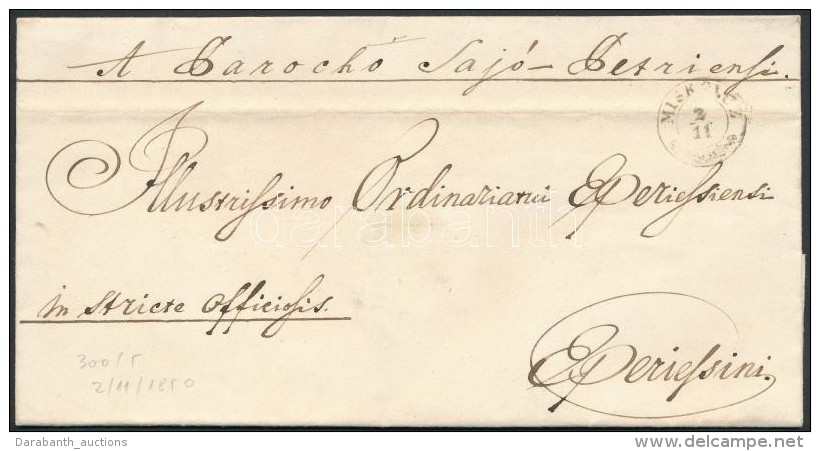 A Parocho Sajó-Petriensi.
MISKOLCZ
2
11
Illustrissimo Ordinariatui Eperiessiensi
darabanth
in stricte officiosis.
Eperiessini.
300/5
2/11/1850
Darabanth_auctions
delcampe.net